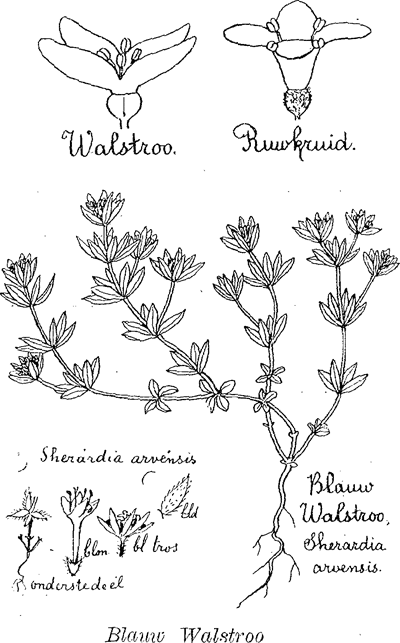 Walstroo.
Ruwkruid.
Sherardia arvensis
bld
blm
bl tros
onderste deel
Blauw
Walstroo,
Sherardia
arvensis.
Blauw Walstroo